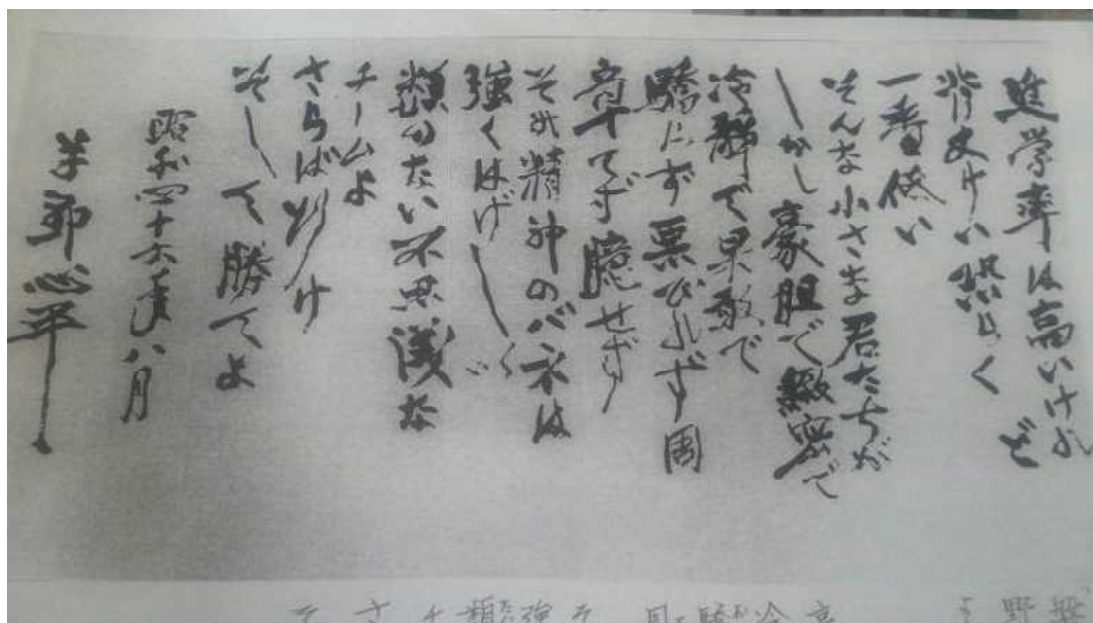 進学率は高いけれ
ど
背丈けは恐らく
一番低い
そんな小さな君たちが
しかし豪胆で緻密で
冷静で果敢で
驕らず悪びれず周
章てず臆せず
その精神のバネは
強くはげしく
類のない不思議な
チームよ
さらば行け
そして勝てよ
昭和四十六年八月
草野心平